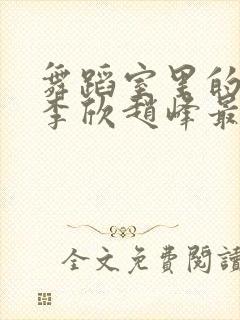 舞蹈室里的
李欣趙峰最
全文免費閱讀